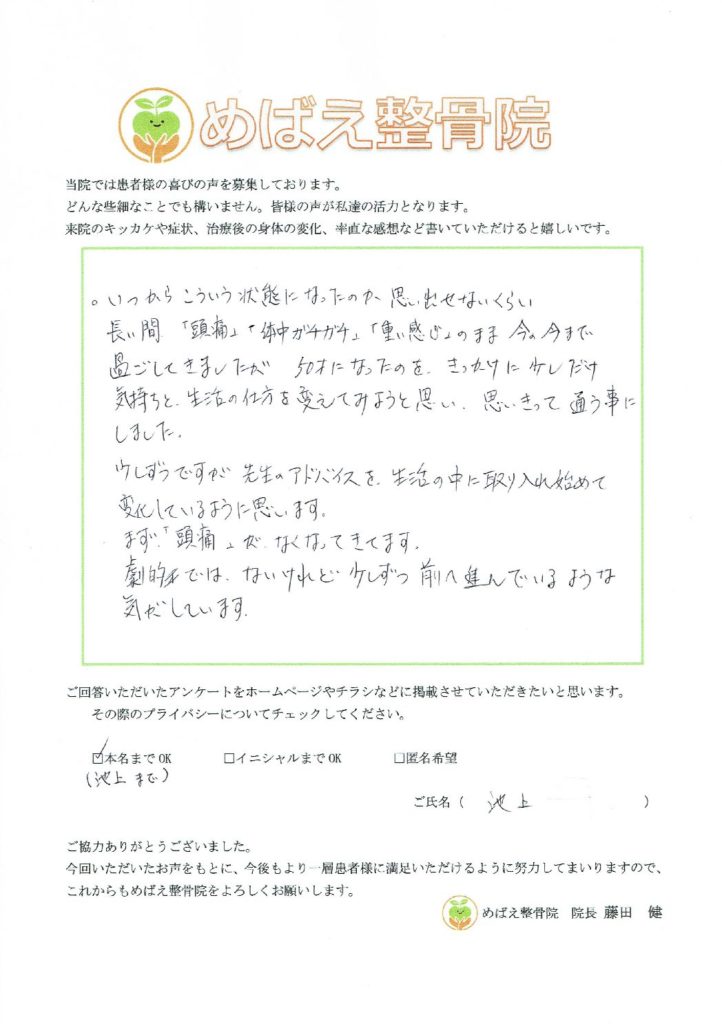 めばえ整骨院
当院では患者様の喜びの声を募集しております。
どんな些細なことでも構いません。皆様の声が私達の活力となります。
来院のキッカケや症状、治療後の身体の変化、率直な感想など書いていただけると嬉しいです。
。いつからこういう状態になったのか思い出せないくらい
長い間、「頭痛」「体中ガチガチ」「重い感じ」のまま今の今まで
過ごしてきましたが 50才になったのを、きっかけに少しだけ
気持ちと、生活の仕方を変えてみようと思い、思いきって通う事に
しました。
少しずつですが 先生のアドバイスを、生活の中に取り入れ始めて
変化しているように思います。
まず、「頭痛」が、なくなってきてます。
劇的では、ないけれど 少しずつ 前へ進んでいるような
気がしています。
ご回答いただいたアンケートをホームページやチラシなどに掲載させていただきたいと思います。
その際のプライバシーについてチェックしてください。
☑本名までOK □イニシャルまでOK □匿名希望
(池上まで)
ご氏名( 池上 )
ご協力ありがとうございました。
今回いただいたお声をもとに、今後もより一層患者様に満足いただけるように努力してまいりますので、
これからもめばえ整骨院をよろしくお願いします。
めばえ整骨院 院長 藤田 健